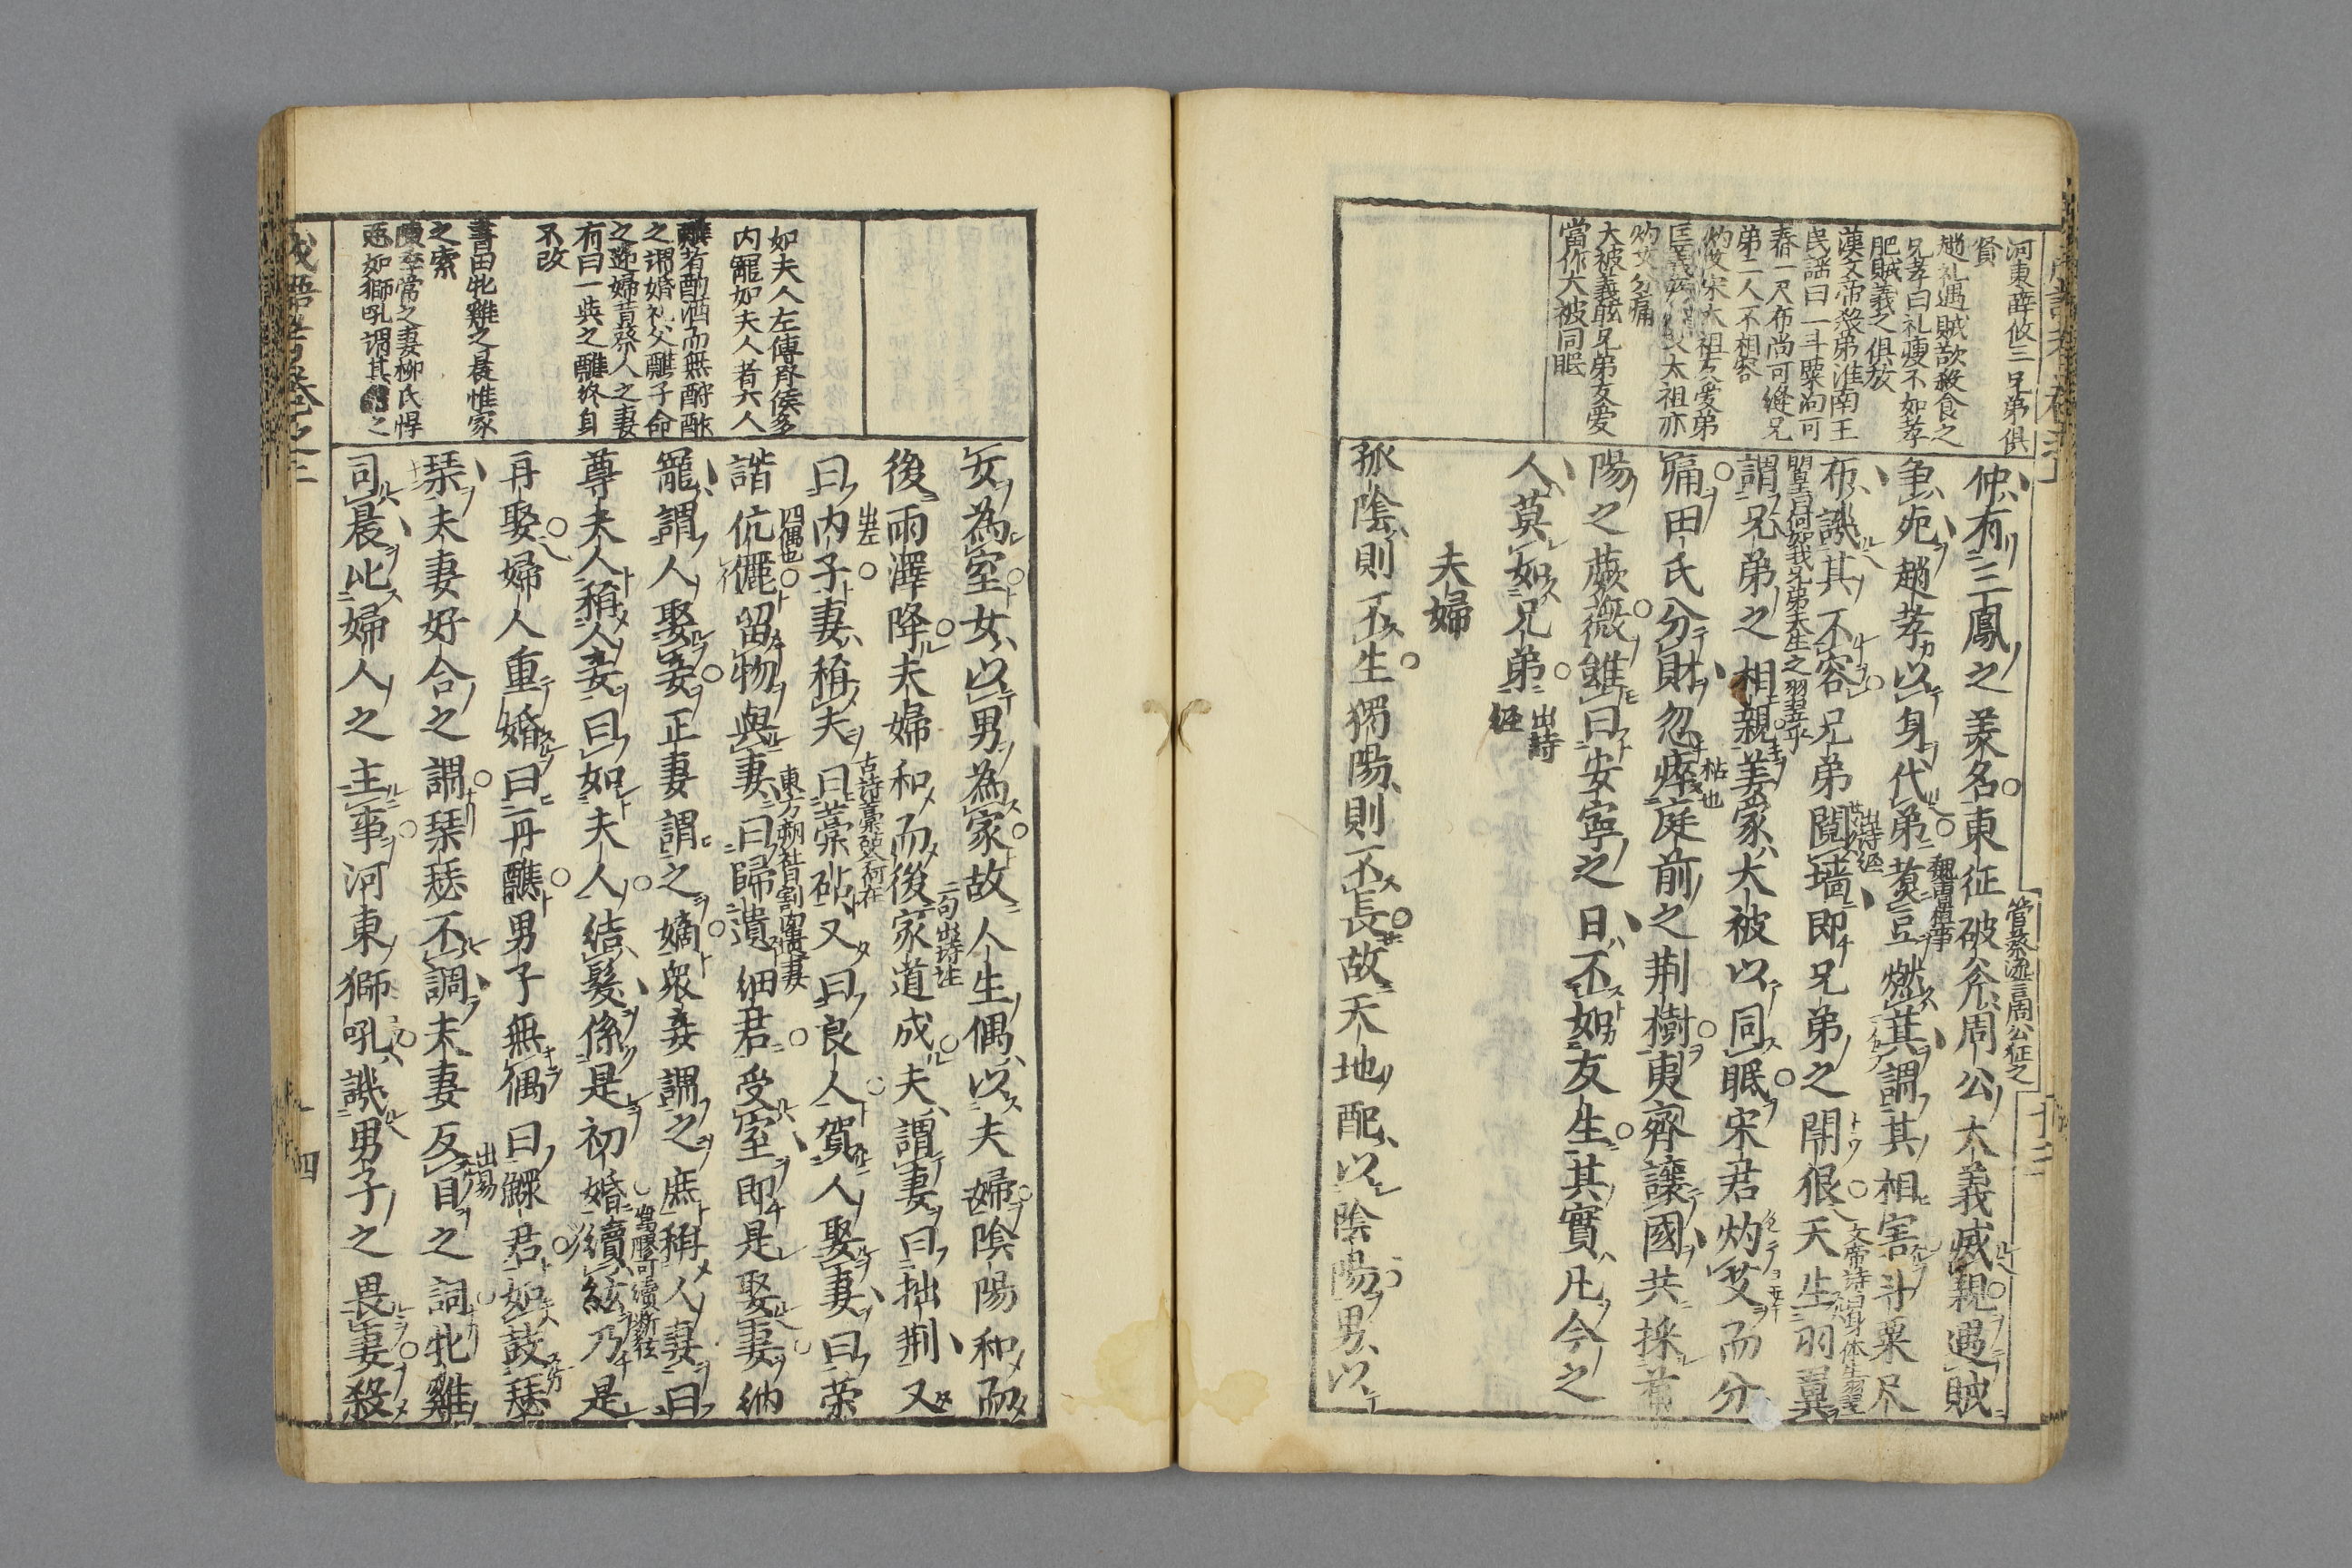 河東薛收三兄弟俱
賢
趙礼遇賊欲殺食之
兄孝曰礼瘦不如孝
肥賊義之俱放
漢文帝殺弟淮南王
民謡曰一斗粟尚可
舂一尺布尚可縫兄
弟二人不相容
灼艾宋太祖友愛弟
太祖亦
灼艾分痛
大被姜肱兄弟友愛
當作大被同眠
仲有三鳳之美名東征破斧周公大義滅親遇賊
管蔡流言周公征之
争死趙孝以身代弟煮豆燃萁謂其相害斗粟尺
布譏其不容兄弟鬩墻即兄弟之鬪狠天生羽翼
出詩経
文帝詩曰身体生羽翼
謂兄弟之相親姜家大被以同眠宋君灼艾而分
痛田氏分財忽瘁庭前之荆樹夷齊讓國共採首
枯也
陽之蕨薇雖曰安寧之日不如友生其實凡今之
人莫如兄弟
出詩
経
夫婦
孤陰則不生獨陽則不長故天地配以陰陽男以
女為室女以男為家故人生偶以夫婦陰陽和而
後雨澤降夫婦和而後家道成夫謂妻曰拙荆又
曰内子妻稱夫曰藁砧又曰良人賀人娶妻曰荣
出左
古詩藁砧今何在
諧伉儷留物與妻曰歸遺細君受室即是娶妻納
四偶也
東方朔社日割肉遺妻
寵謂人娶妾正妻謂之嫡衆妾謂之庶稱人妻曰
尊夫人稱人妾曰如夫人結髮係是初婚續絃乃是
鸞膠可續断弦
再娶婦人重婚曰再醮男子無偶曰鰥君如鼓瑟
琴夫妻好合之謂琴瑟不調夫妻反目之詞牝雞
出易
司晨比婦人之主事河東獅吼譏男子之畏妻殺
如夫人左傳齊侯多
内寵如夫人者六人
醮者酌酒而無酬酢
之謂婚礼父醮子命
之迎婦昔蔡人之妻
有曰一與之醮終身
不改
書曰牝雞之晨惟家
之索
陳季常之妻柳氏悍
惡如獅吼謂其
四